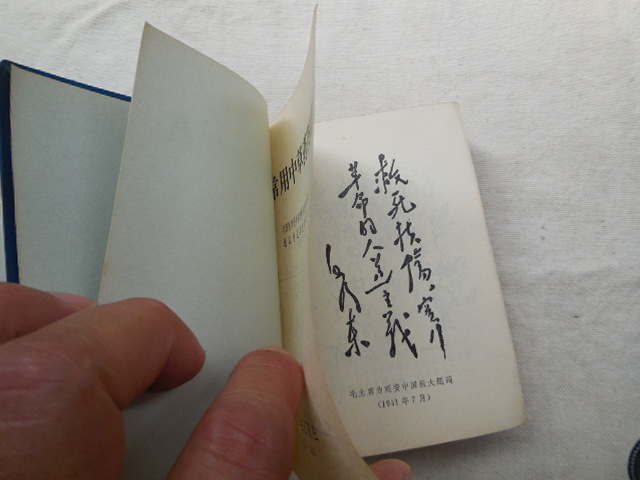 常用中草
救死扶傷,實行
革命的人道主義
毛澤東
毛主席为延安中国医大题词
(1941年7月)